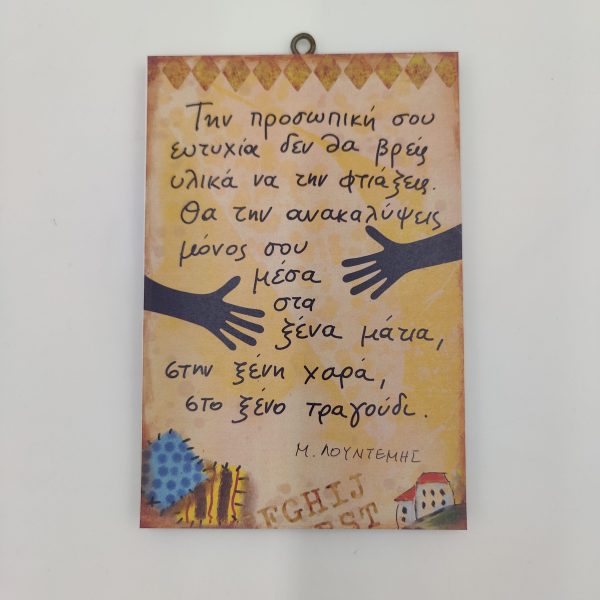 Την προσωπική σου
ευτυχία δεν θα βρείς
υλικά να την φτιάξεις.
Θα την ανακαλύψεις
μόνος σου
μέσα
στα
ξένα μάτια,
στην ξένη χαρά,
στο ξένο τραγούδι.
Μ. ΛΟΥΝΤΕΜΗΣ
FGHIJ
EST